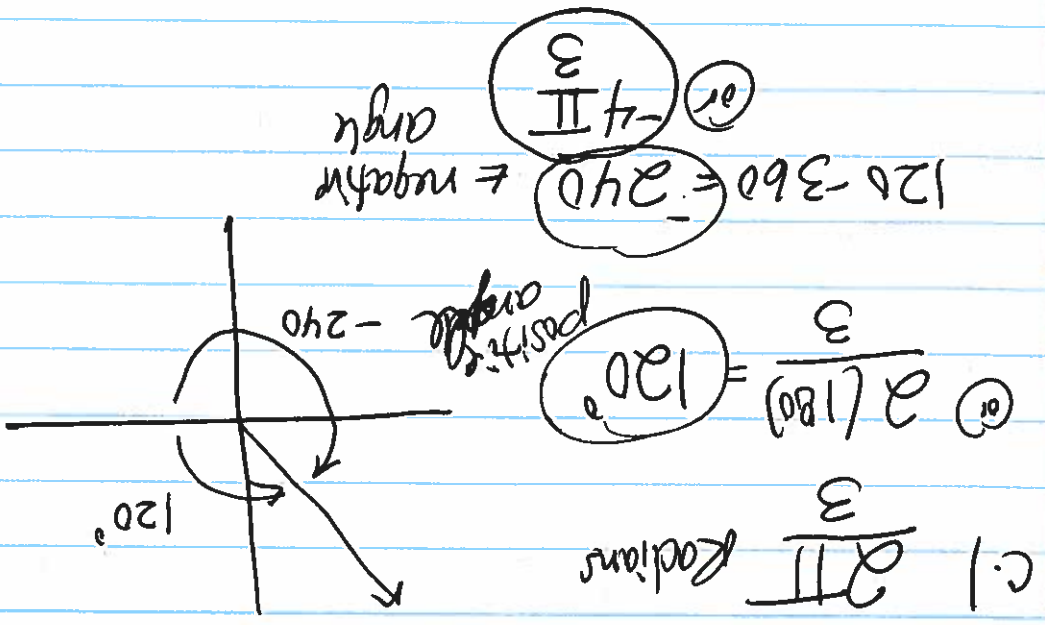 c.) 2π/3 Radians
or 2(180)/3 = 120° positive angle
120°
-240
120-360 = -240 ← negative angle
or -4π/3